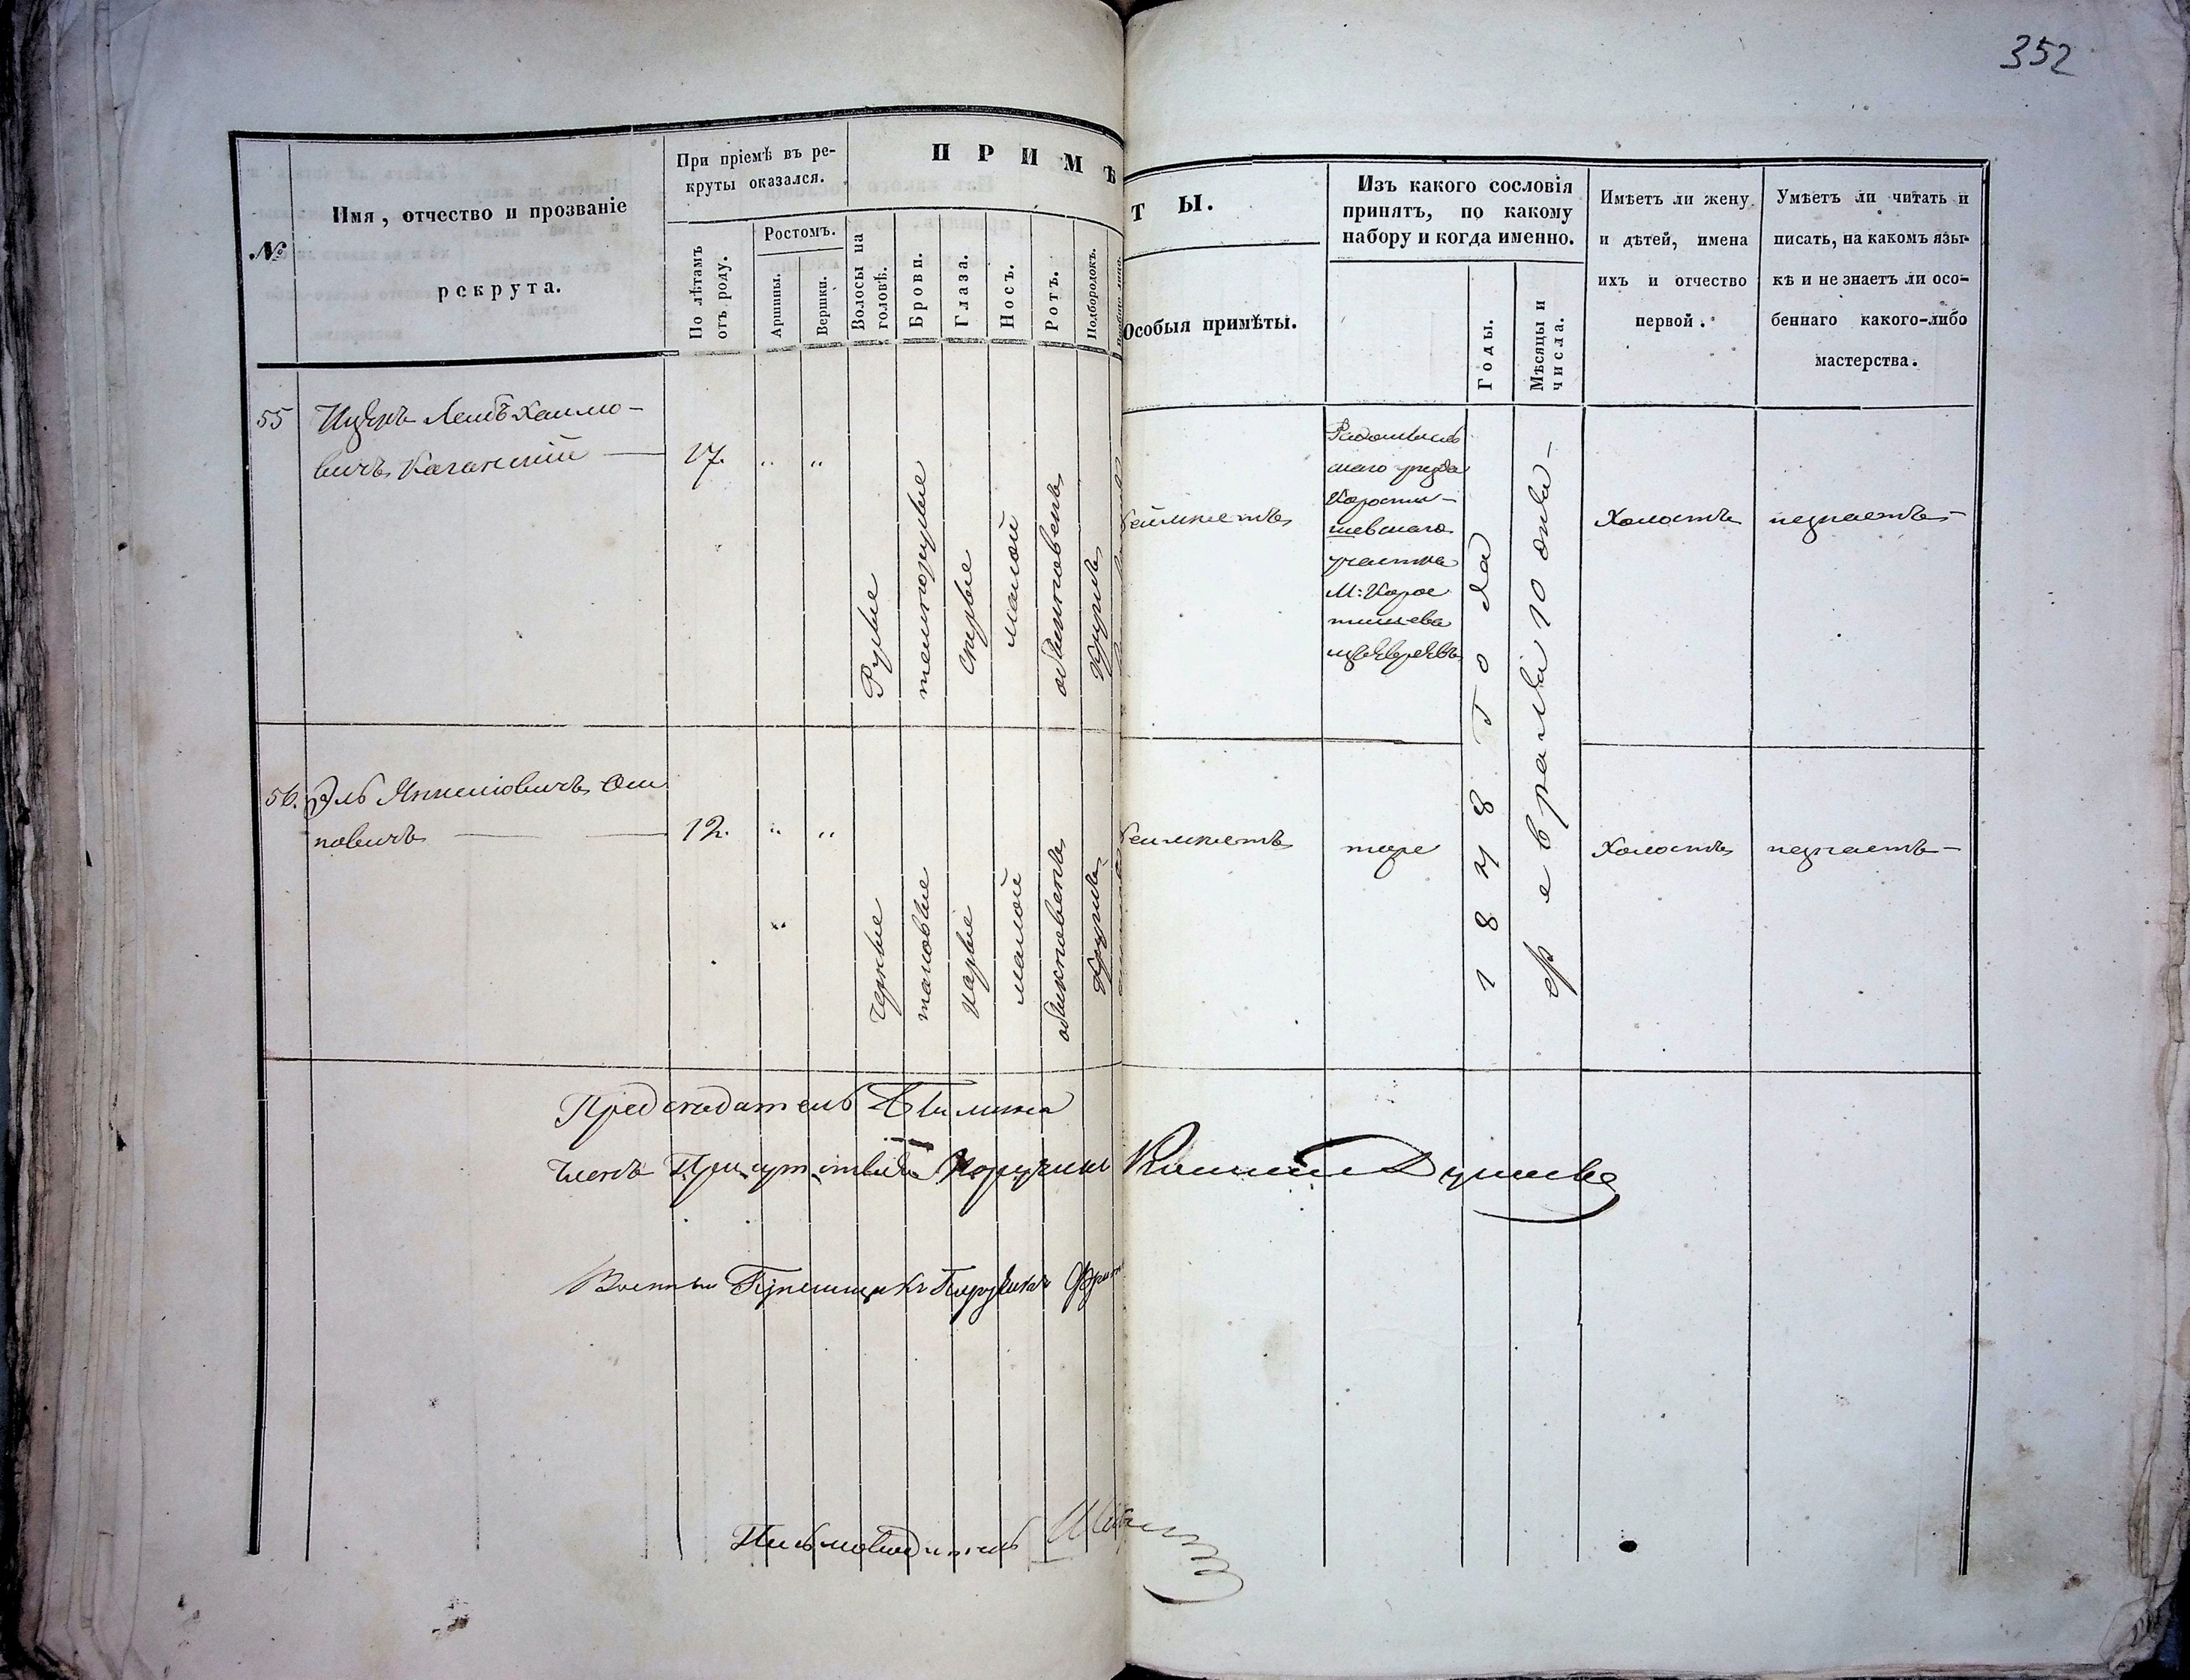 352
ПРИМѢТЫ.
№
Имя, отчество и прозваніе
рекрута.
При пріемѣ въ ре-
круты оказался.
По лѣтамъ
отъ роду.
Ростомъ.
Аршины.
Вершки.
Волосы на
головѣ.
Брови.
Глаза.
Носъ.
Ротъ.
Подбородокъ.
Особыя примѣты.
Изъ какого сословія
принятъ, по какому
набору и когда именно.
Годы.
Мѣсяцы и
числа.
Имѣетъ ли жену
и дѣтей, имена
ихъ и отчество
первой.
Умѣетъ ли читать и
писать, на какомъ язы-
кѣ и не знаетъ ли осо-
беннаго какого-либо
мастерства.
55
Лейбъ Хаимо-
вичъ Каганскій
17.
" "
Русые
темнорусые
сѣрые
малой
обыкновенъ
круглъ
неимѣетъ
Радомысль
скаго уѣзда
Корости-
шевскаго
участка
М: Корос
тишева
изъ Евреевъ
1848 Года
февраля 10 дня -
Холостъ
незнаетъ -
56.
Эль Янкелiовичъ
12.
" "
черные
таковые
карые
малой
обыкновенъ
круглъ
неимѣетъ
тоже
Холостъ
незнаетъ -
Предсѣдатель
Членъ Присутствія Поручикъ
Военный Пріемщикъ Поручикъ
Письмоводитель